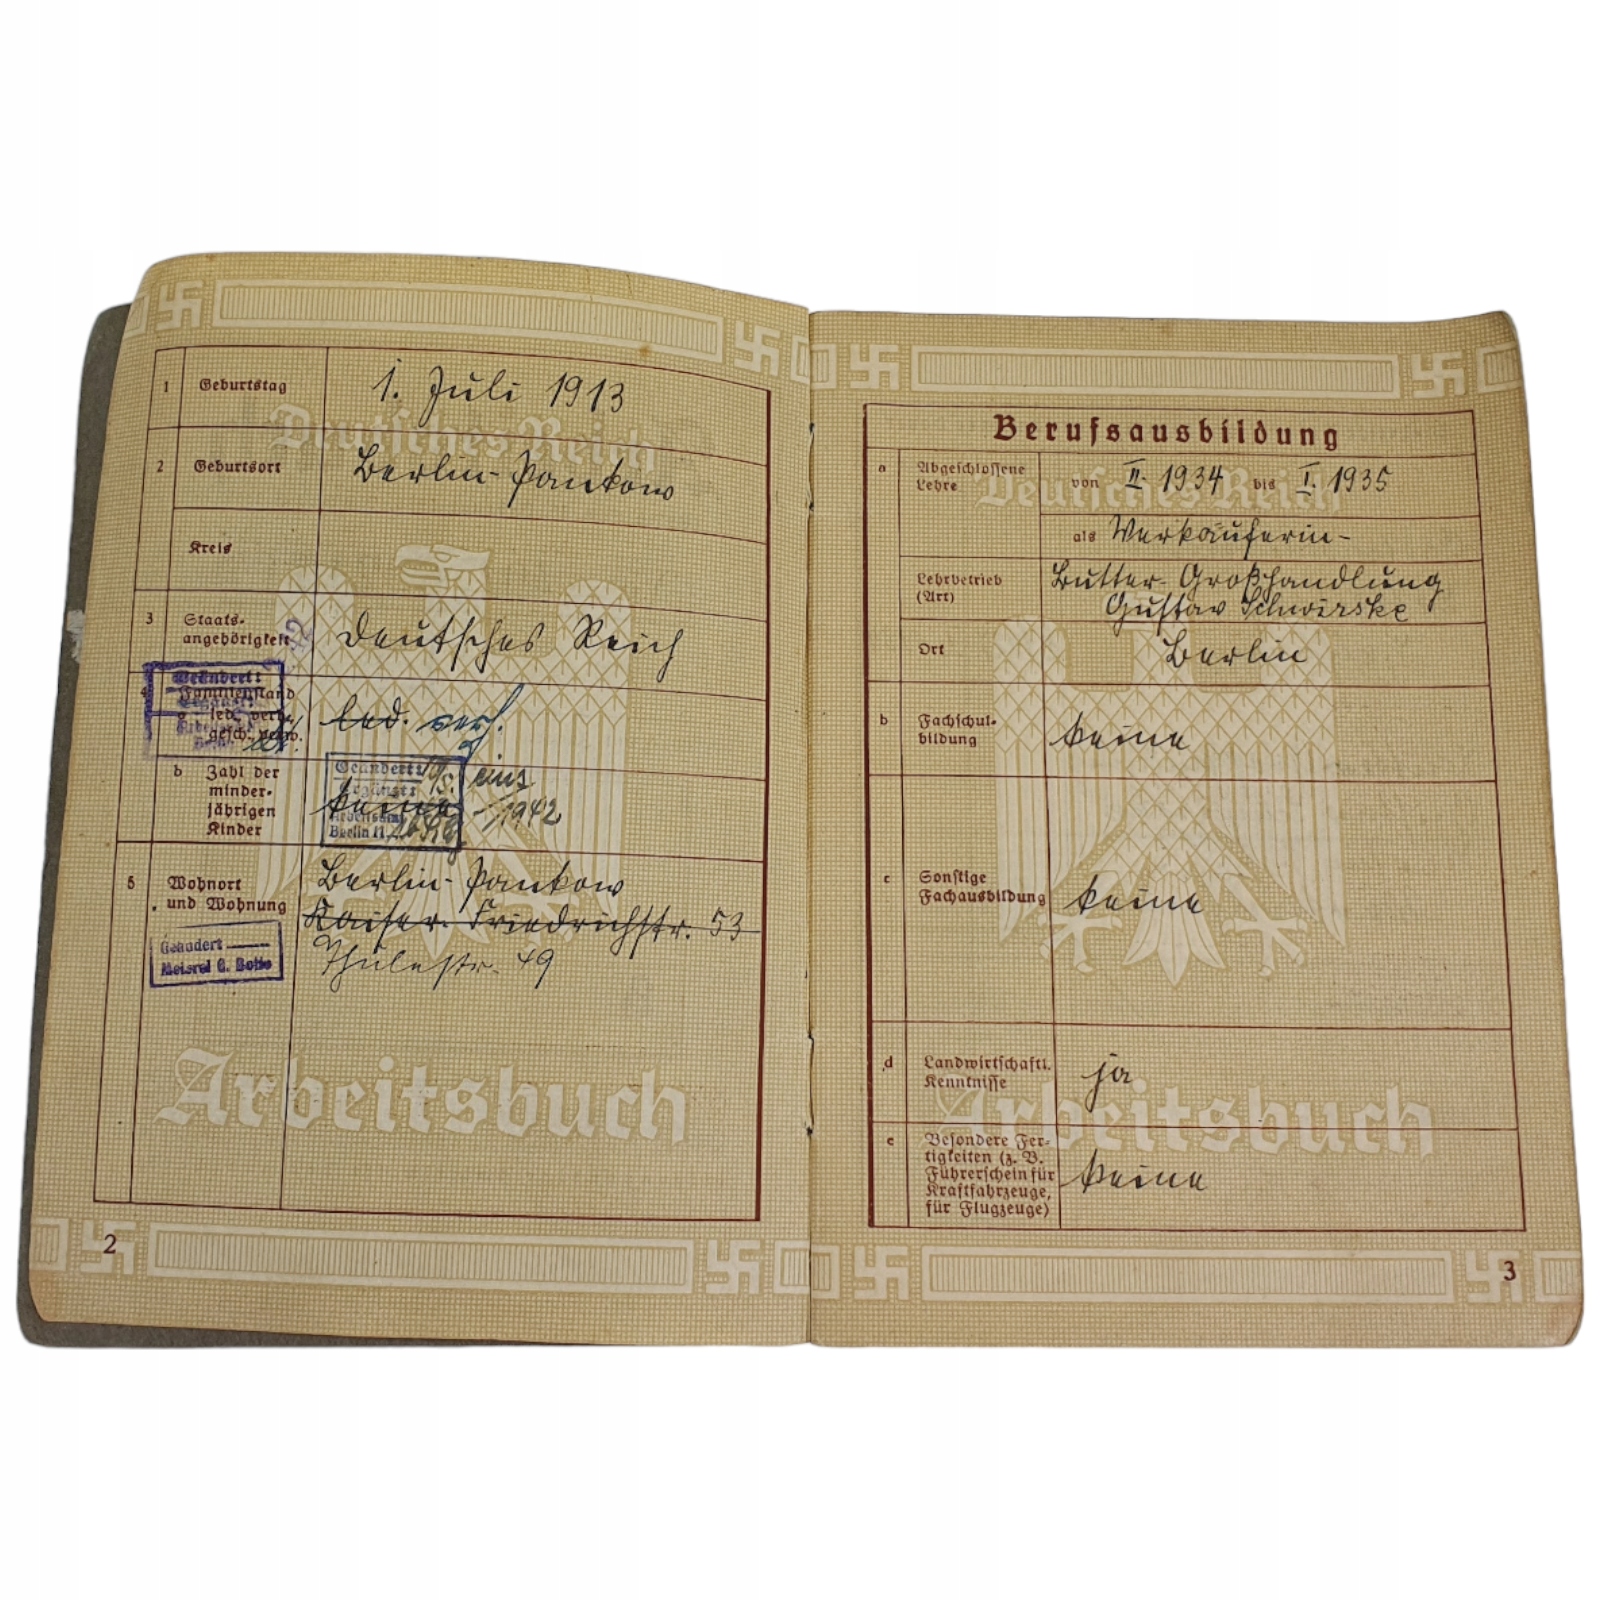 Deutsches Reich
1 Geburtstag 1. Juli 1913
2 Geburtsort Berlin-Pankow
Kreis
3 Staats-
angehörigkeit Deutsches Reich
Geändert:
4 Familienstand
a led. verh.
gesch. verw. led. verh.
Geändert:
Ergänzt:
Arbeitsamt
Berlin
b Zahl der
minder-
jährigen
Kinder
keine eins
1942
5 Wohnort
und Wohnung
Berlin-Pankow
Kaiser-Friedrichstr. 53
Thulestr. 49
Geändert
Arbeitsbuch
2
Berufsausbildung
Deutsches Reich
a Abgeschlossene
Lehre
von II. 1934 bis I. 1935
als Verkäuferin-
Lehrbetrieb
(Art)
Butter-Großhandlung
Gustav Schwirske
Ort Berlin
b Fachschul-
bildung
keine
c Sonstige
Fachausbildung
keine
d Landwirtschaftl.
Kenntnisse
ja
Arbeitsbuch
e Besondere Fer-
tigkeiten (z. B.
Führerschein für
Kraftfahrzeuge,
für Flugzeuge)
keine
3